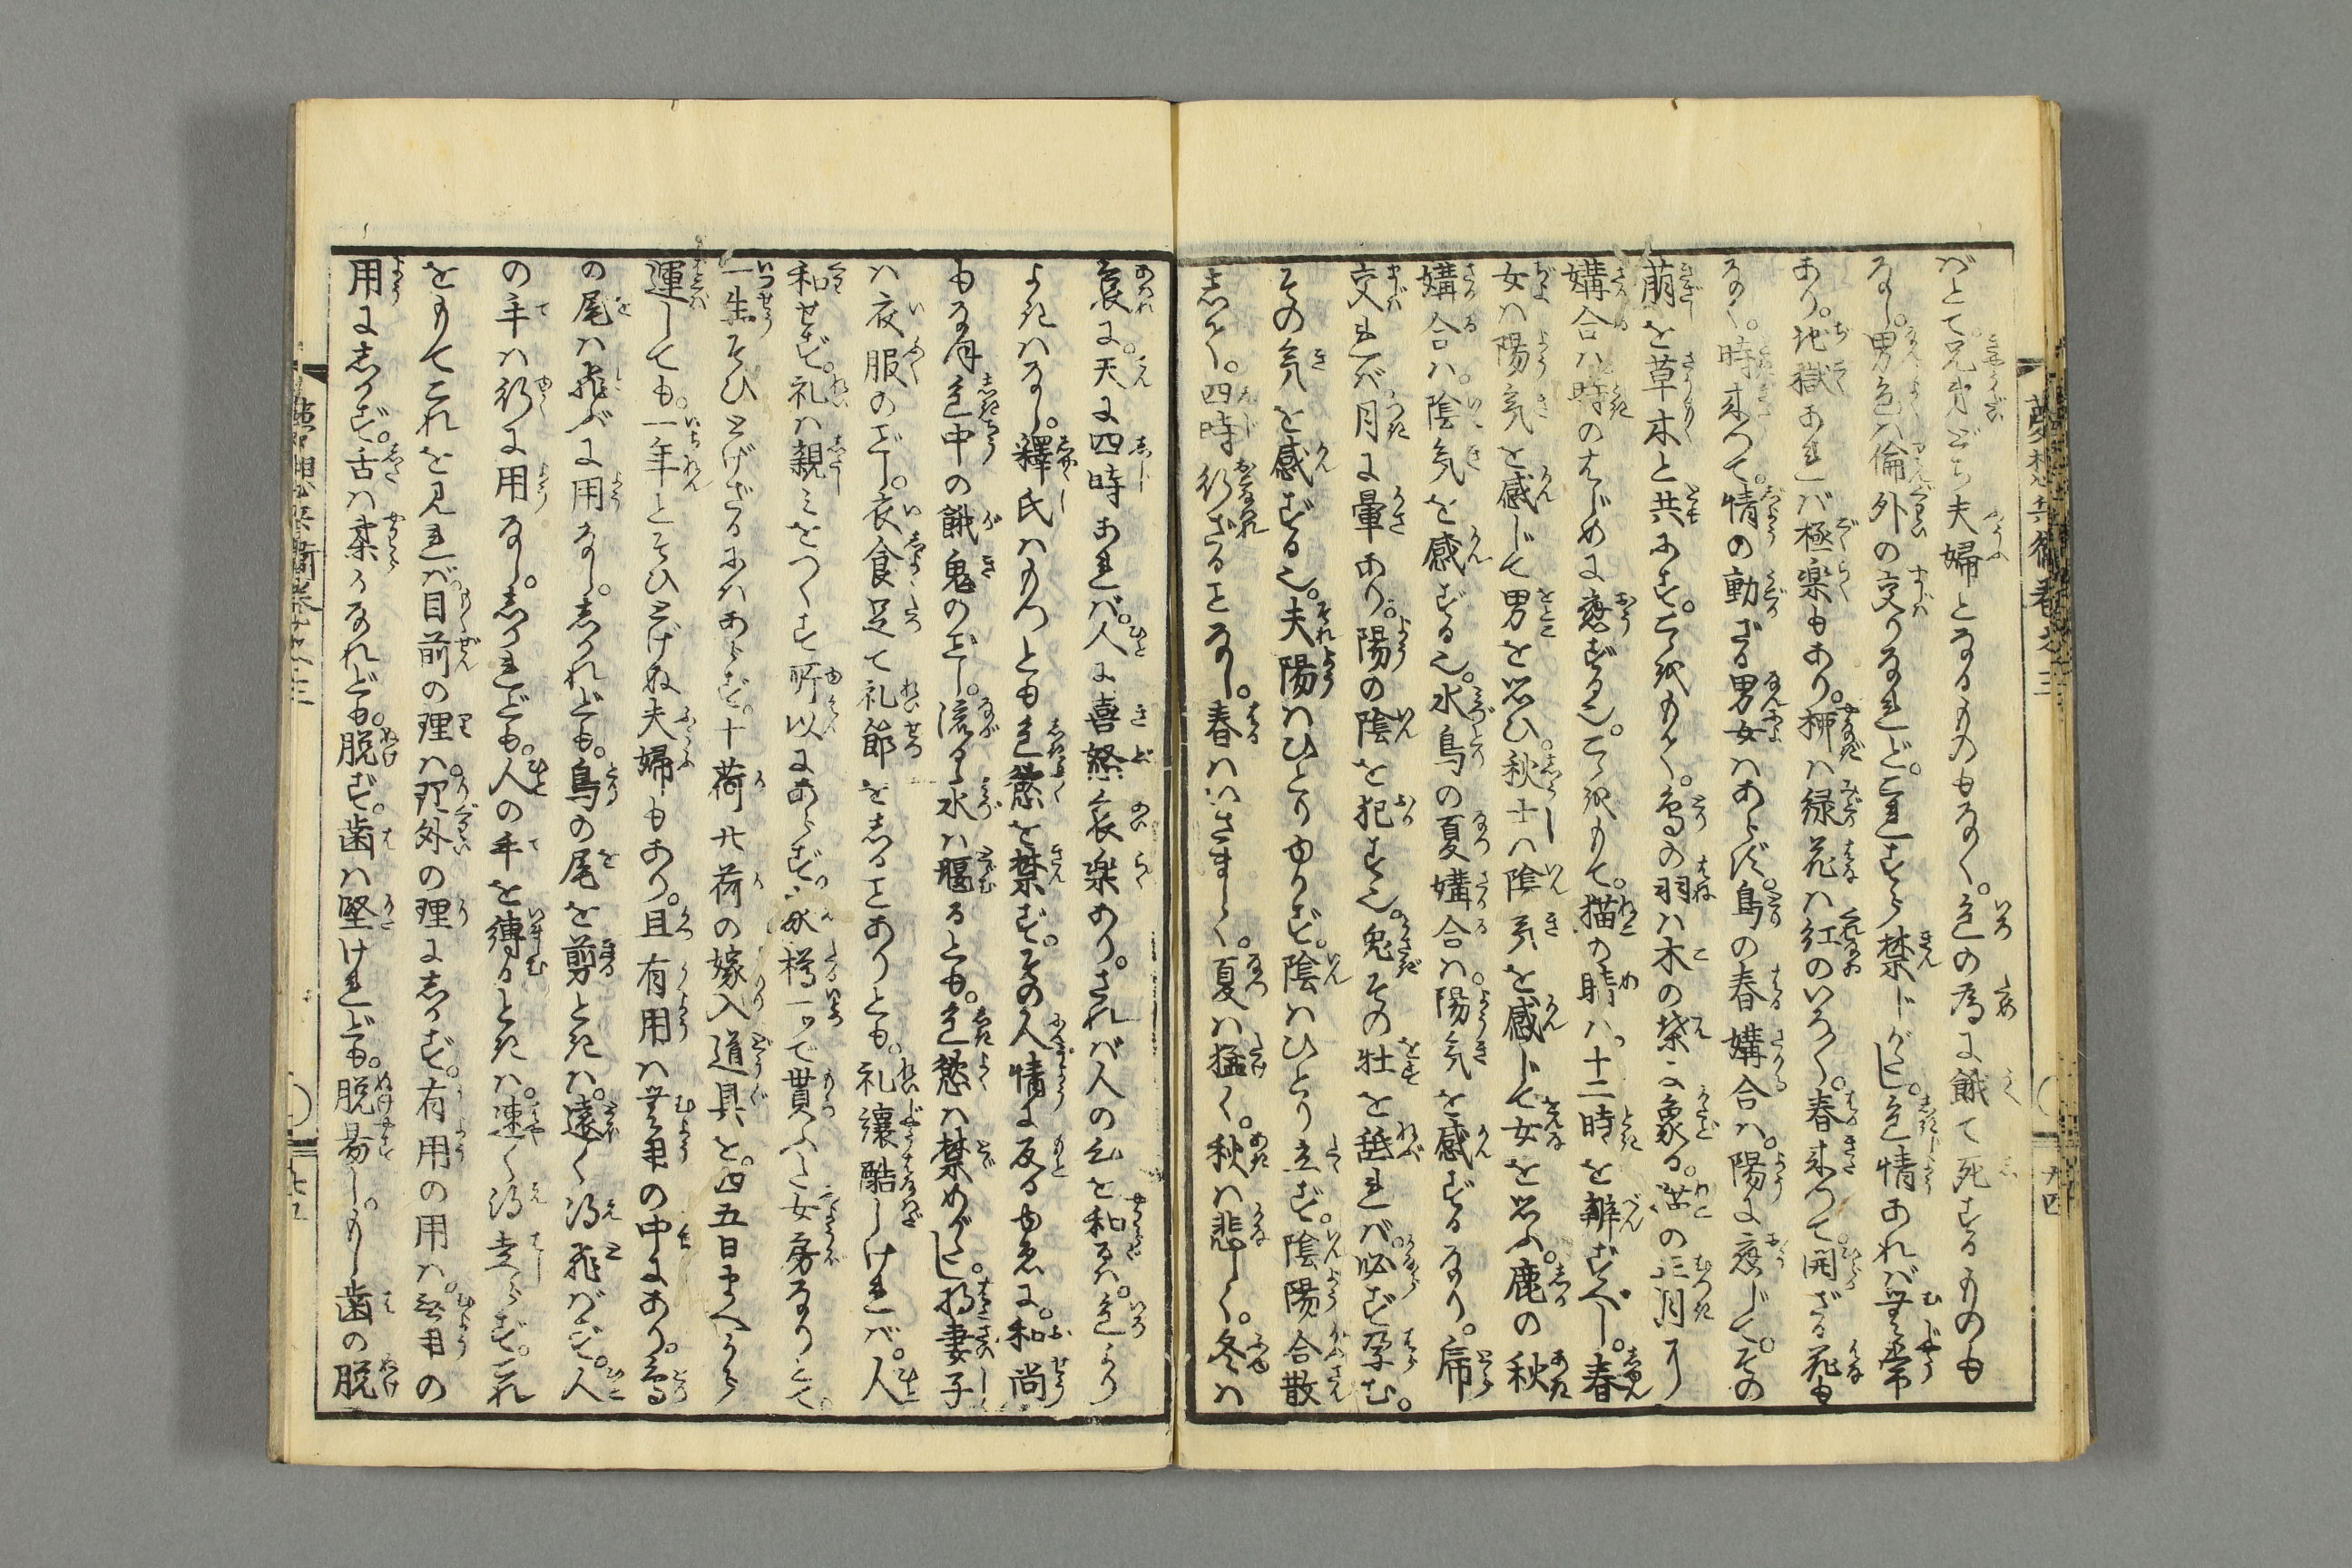 夢想兵衛巻之三
ばとて。兄弟どち夫婦となるものもなく。色の為に餓て死するものも
なし。男色ハ倫外の交りなれど。これすら禁じがたし。色情あれバ無常
あり。地獄あれバ極楽もあり。柳ハ緑花ハ紅のいろ〳〵。春来つて。開ざる花も
なく。時来つて。情の動ざる男女ハあらず。鳥の春媾合ハ。陽に応じて。その
萠を草木と共にす。こゝをもて。鳥の羽ハ木の葉に象る。猫の
媾合ハ時のはじめに応ずる也。こゝをもて。猫の睛ハ。十二時を辨ずべし。春
女ハ陽気を感じて男を思ひ。秋士ハ陰気を感じて女を思ふ。鹿の秋
媾合ハ。陰気を感ずる也。水鳥の夏媾合ハ。陽気を感ずるなり。虎
交れバ月に暈あり。陽の陰を犯す也。兎その牡を舐れバ。必ず孕む。
その気を感ずる也。夫陽ハひとりゆかず。陰ハひとり立ず。陰陽合散
しかく。四時行ざることなし。春ハいさましく。夏ハ猛く。秋ハ悲しく。冬ハ
哀に。天に四時あれバ。人に喜怒哀楽あり。されバ人の心を和るハ。色より
よきハなし。釋氏ハもつとも色慾を禁ず。その人情に反るゆゑに。和尚
もなほ色中の餓鬼のごとし。流るゝ水ハ堰るとも。色慾ハ禁めがたし。妻子
ハ衣服のごとし。衣食足て礼節をしることありとも。礼讓酷しけれバ。人
和せず。礼ハ親しみをつくす所以にあらず。樽一ッで貰ふた女房なりとて。
一生そひとげざるにハあらず。十荷廿荷の嫁入道具を。四五日まへから
運しても。一年とそひとげぬ夫婦もあり。且有用ハ無用の中にあり。鳥
の尾ハ飛ぶに用なし。しかれども。鳥の尾を剪ときハ。遠く得飛ばず。人
の手ハ行に用なし。しかれども。人の手を縛るときハ。速く得走らず。これ
をもてこれを見れバ。目前の理ハ。理外の理にしかず。有用の用ハ。無用の
用にしかず。舌ハ柔かなれども。脱ず。歯ハ堅けれども。脱易し。もし歯の脱